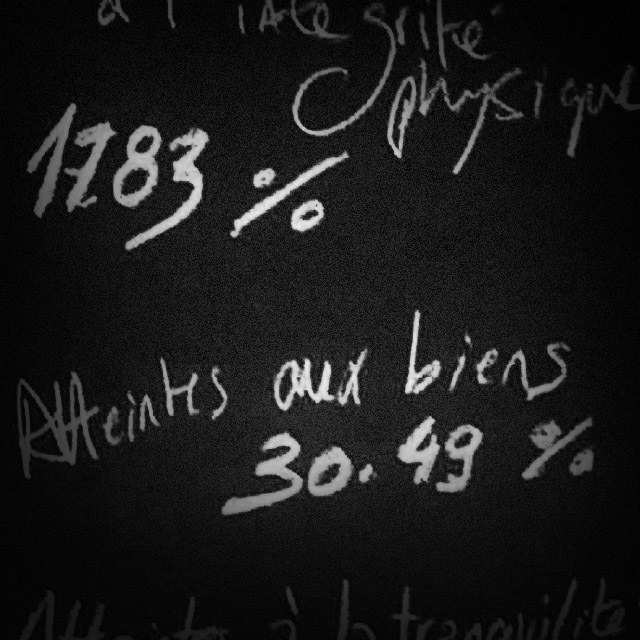 à l'intégrité
physique
1783 %
Atteintes aux biens
30.49 %
Atteintes à la tranquilité